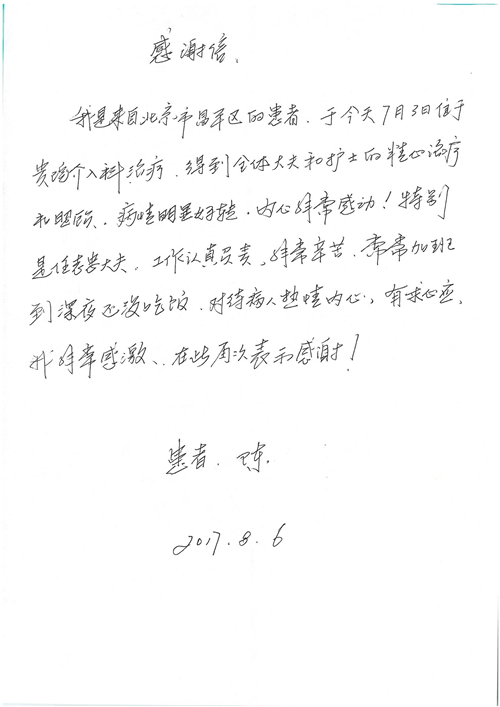 感谢信.
我是来自北京市昌平区的患者.于今天7月3日住于
贵院介入科治疗.得到全体大夫和护士的精心治疗
和照顾.病情明显好转.内心非常感动!特别
是任志忠大夫.工作认真负责.非常辛苦.常常加班
到深夜还没吃饭.对待病人热情内心,有求必应.
我非常感激、在此再次表示感谢!
患者.
2017.8.6